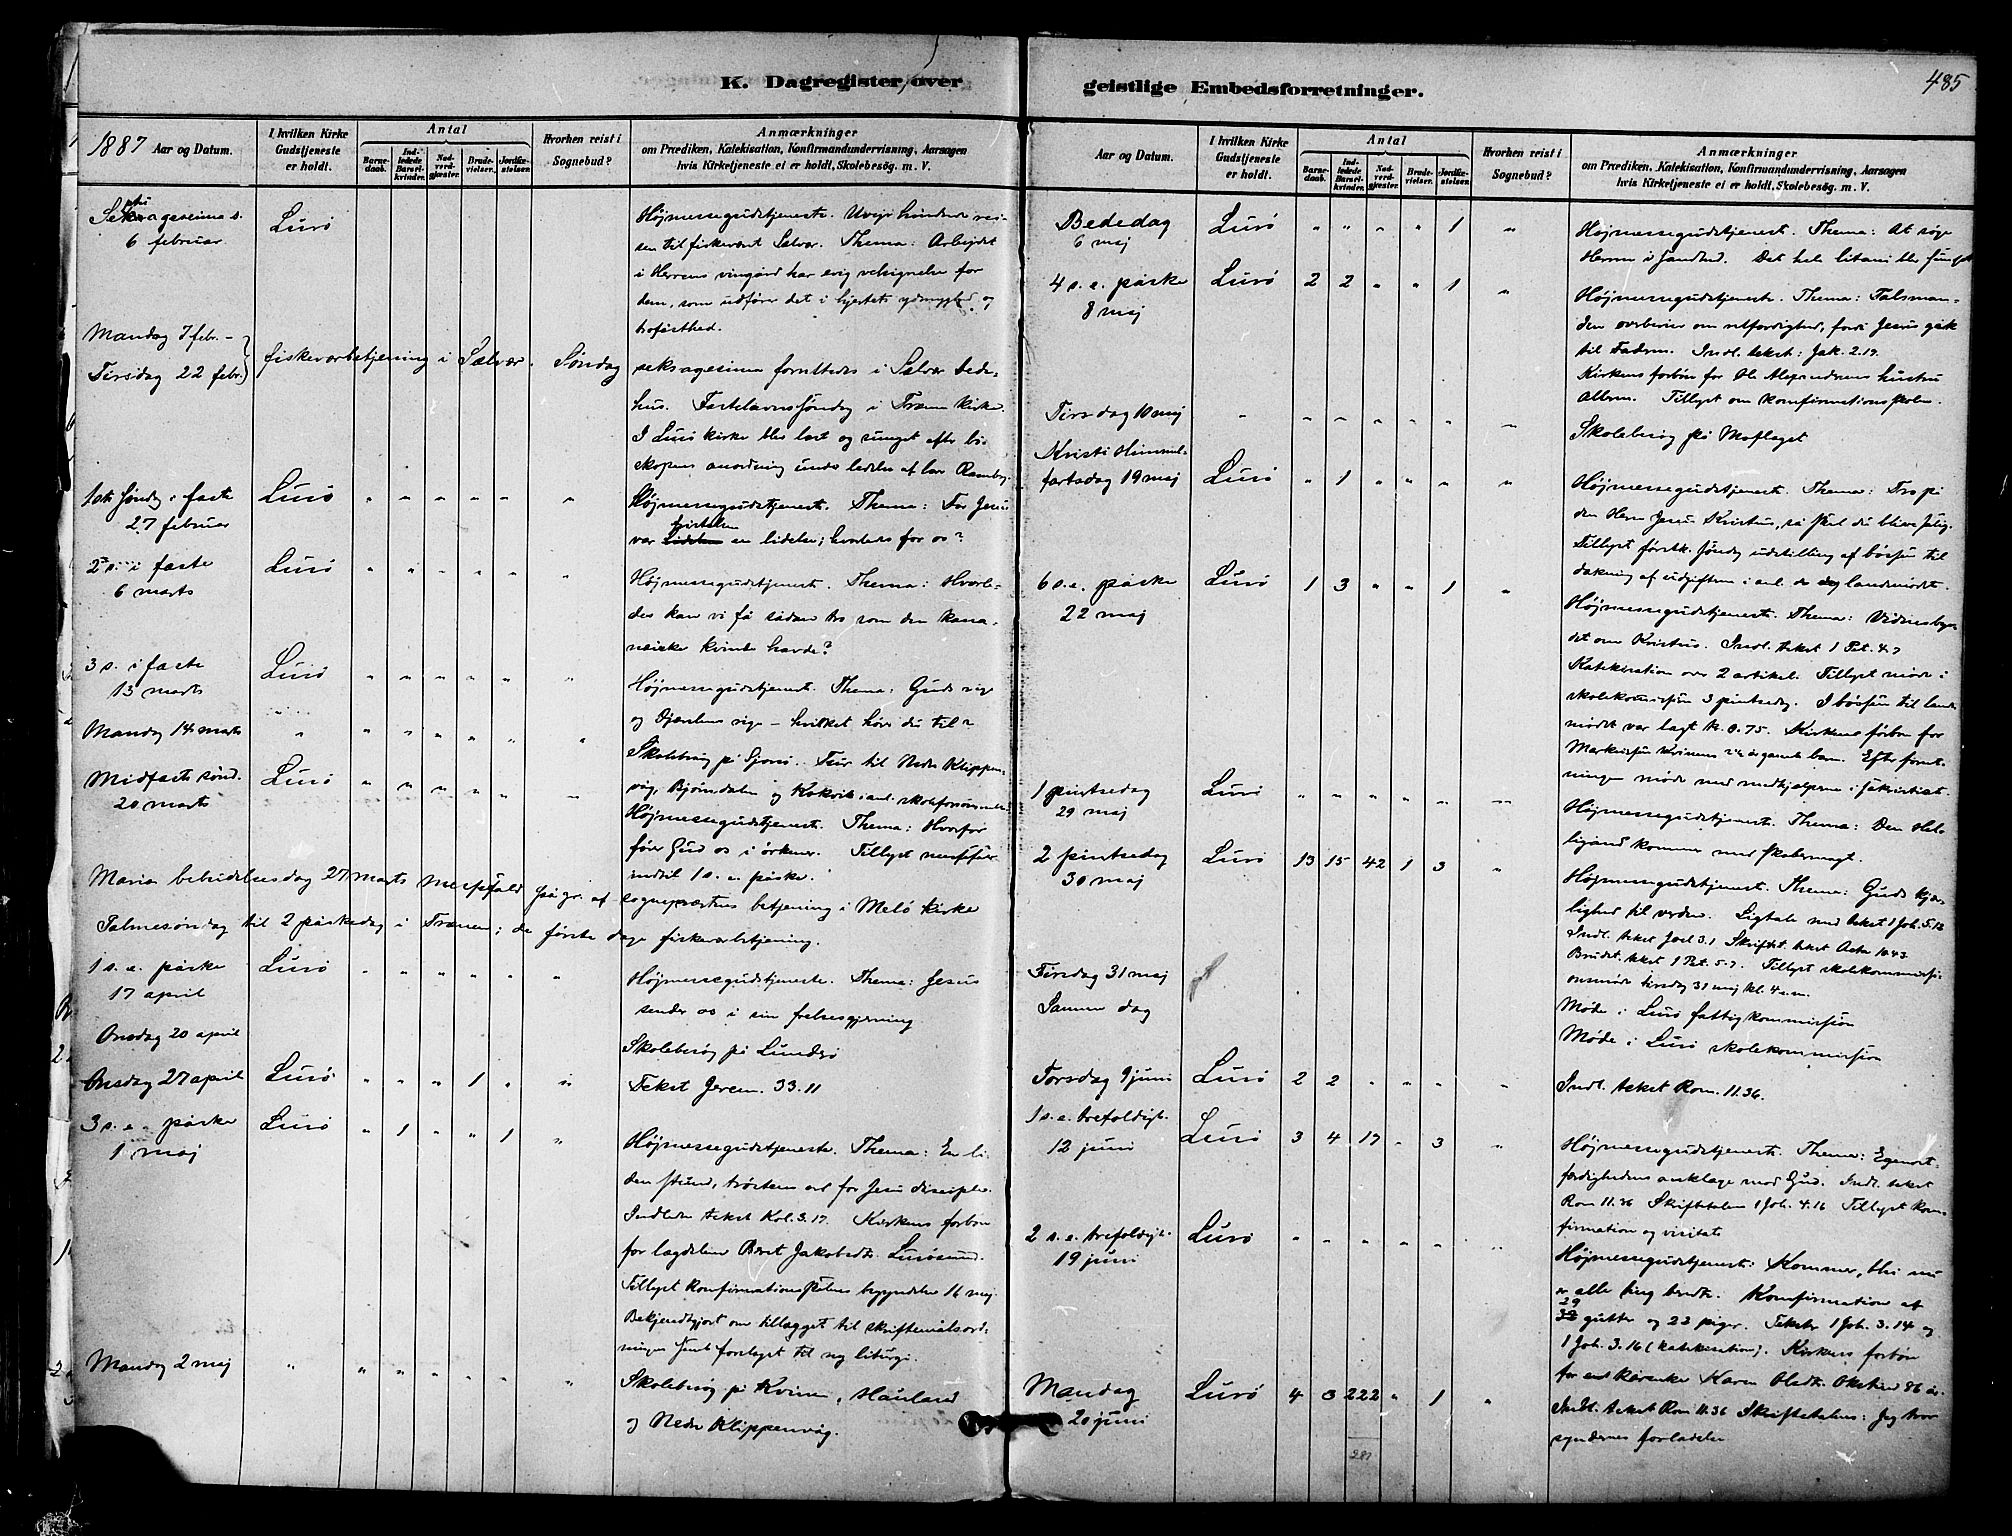 K. Dagregister over
geistlige Embedsforretninger.
485
1887
Aar og Datum.
I hvilken Kirke
Gudstjeneste
er holdt.
Antal
Barne-
daab.
Ind-
ledede
Barsel-
kvinder.
Nad-
verd-
gjæster.
Brude-
vielser.
Jordfæ-
stelser.
Hvorhen reist i
Sognebud?
Anmærkninger
om Prædiken, Katekisation, Konfirmandundervisning, Aarsagen
hvis Kirketjeneste ei er holdt, Skolebesög. m. V.
6 februar.
Lurö
Højmessegudstjeneste. Uvejr hindrede rei-
sen til fiskeværet Selvær. Thema: Arbejdet
i Herrens vingård har evig velsignelse for
dem, som udfører det i hjertets ydmyghed og
trofasthed.
Mandag 7 febr. -
Tirsdag 22 febr.
fiskeværbetjening i Selvær. Søndag
seksagesima forrettedes i Selvær bede-
hus. Fastelavns søndag i Træna kirke.
I Lurö kirke blev læst og sunget efter bi-
skopens anordning under ledelse af lær. Ramberg.
1ste søndag i faste
27 februar
Lurö " " " " " "
Højmessegudstjeneste. Thema: For Jesus
var fristelsen en lidelse; hvorledes for os?
2 s. i faste
6 marts
Lurö " " " " " "
Højmessegudstjeneste. Thema: Hvorle-
des kan vi få sådan tro som den kana-
næiske kvinde havde?
3 s. i faste
13 marts
Lurö " " " " " "
Højmessegudstjeneste. Thema: Guds rige
og Djævelens rige - hvilket hører du til?
Mandag 14 marts
" " " " " " "
Skolebesøg på Sjona. Tur til Nedre Klippen-
våg, Bjørndalen og Kokvik i anl. skoleforsømmelse
Midfaste sønd.
20 marts
Lurö " " " " " "
Højmessegudstjeneste. Thema: Hvorfor
fører Gud os i ørkener. Tillyst messefær
indtil 1 s. e. påske.
Mariæ bebudelsesdag 27 marts messefald på gr. af sogneprestens betjening i Melö kirke
Palmesøndag til 2 påskedag i Trænen; de første dage fiskeværbetjening.
1 s. e. påske
17 april
Lurö " " " " " "
Højmessegudstjeneste. Thema: Jesus
sender os i sin frelsesgjerning
Onsdag 20 april
Skolebesøg på Lundø
Onsdag 27 april
Lurö " " " 1 " "
Tekst Jerem. 33.11
3 s. e. påske
1 maj
Lurö " 1 " " 1 "
Højmessegudstjeneste. Thema: En li-
den stund, trøstens ord for Jesu disciple.
Indledn. tekst Kol. 3.17. Kirkens forbøn
for lægdelem Beret Jakobsdtr. Lurösund.
Tillyst konfirmationsskolens begyndelse 16 maj.
Bekjendtgjort om tillægget til skriftemålsord-
ningen samt forslaget til ny liturgi.
Mandag 2 maj
" " " " " " "
Skolebesøg på Kvina, Haüland
og Nedre Klippenvåg.
Aar og Datum.
I hvilken Kirke
Gudstjeneste
er holdt.
Antal
Barne-
daab.
Ind-
ledede
Barsel-
kvinder.
Nad-
verd-
gjæster.
Brude-
vielser.
Jordfæ-
stelser.
Hvorhen reist i
Sognebud?
Anmærkninger
om Prædiken, Katekisation, Konfirmandundervisning, Aarsagen
hvis Kirketjeneste ei er holdt, Skolebesög. m. V.
Bededag
6 maj
Lurö " " " " 1 "
Højmessegudstjenest. Thema: At søge
Herren i sandhed. Det hele litani blev sunget
4 s. e. påske
8 maj
Lurö 2 2 " " 1 "
Højmessegudstjeneste. Thema: Talsman-
den overbeviser om retfærdighed, fordi Jesus gik
til Fadren. Indl. tekst: Jak. 2.19.
Kirkens forbøn for Ole Alexandersens hustru
Tillyst om konfirmationsskolen.
Tirsdag 10 maj
" " " " " " "
Skolebesøg på Moflaget
Kristi Himmel-
fartsdag 19 maj
Lurö " 1 " " " "
Højmessegudstjenest. Thema: Tro på
den Herre Jesus Kristus, så skal du blive salig.
Tillyst førstk. søndag udstilling af bøssen til
dækning af udgiften i anl. landmødet.
6 s. e. påske
22 maj
Lurö 1 3 " " 1 "
Højmessegudstjenest. Thema: Vidnesbyr-
det om Kristus. Indl. tekst 1 Pet. 4.7
Katekisation over 2 artikel. Tillyst møde i
skolekommission 3 pintsedag. I bøssen til land-
mødet var lagt kr. 0.75. Kirkens forbøn for
årgamle barn. Efter forret-
ningen møde med medhjælperne i sakristiet.
1 pintsedag
29 maj
Lurö " " " " " "
Højmessegudstjenest. Thema: Den Hel-
ligånd kommer med skabermagt.
2 pintsedag
30 maj
Lurö 13 15 42 1 3 "
Højmessegudstjenest. Thema: Guds kjær-
lighed til verden. Ligtale med tekst 1 Joh. 5.12
Indl. tekst Joel 3.1 Skriftet. tekst Acta 10.43
Brudet. tekst 1 Pet. 5.7. Tillyst skolekommissi-
onsmøde tirsdag 31 maj kl. 4 e.m.
Tirsdag 31 maj
Møde i Lurö fattigkommission
Samme dag
Møde i Lurö skolekommission
Torsdag 9 juni
Lurö 2 2 " " " "
Indl. tekst Rom. 11.36.
1 s. e. trefoldigh.
12 juni
Lurö 3 4 17 " 3 "
Højmessegudstjenest. Thema: Egenret-
færdighedens anklage mod Gud. Indl. tekst
Rom 11.36 Skriftetalen 1 Joh. 4.16 Tillyst kon-
firmation og visitats
2 s. e. trefoldigh.
19 juni
Lurö " " " " " "
Højmessegudstjenest: Kommer, thi nu
er alle ting beredt. Konfirmation af
29
gutter og 22 piger. Tekster 1 Joh. 3.14 og
1 Joh. 3.16 (katekisation). Kirkens forbøn
for enke Karen Olsdtr. 86 år.
Mandag
20 juni
Lurö 4 3 222 " 1 "
Indl. tekst Rom 11.36 Skriftetalens: Jeg tror
syndernes forladelse
281